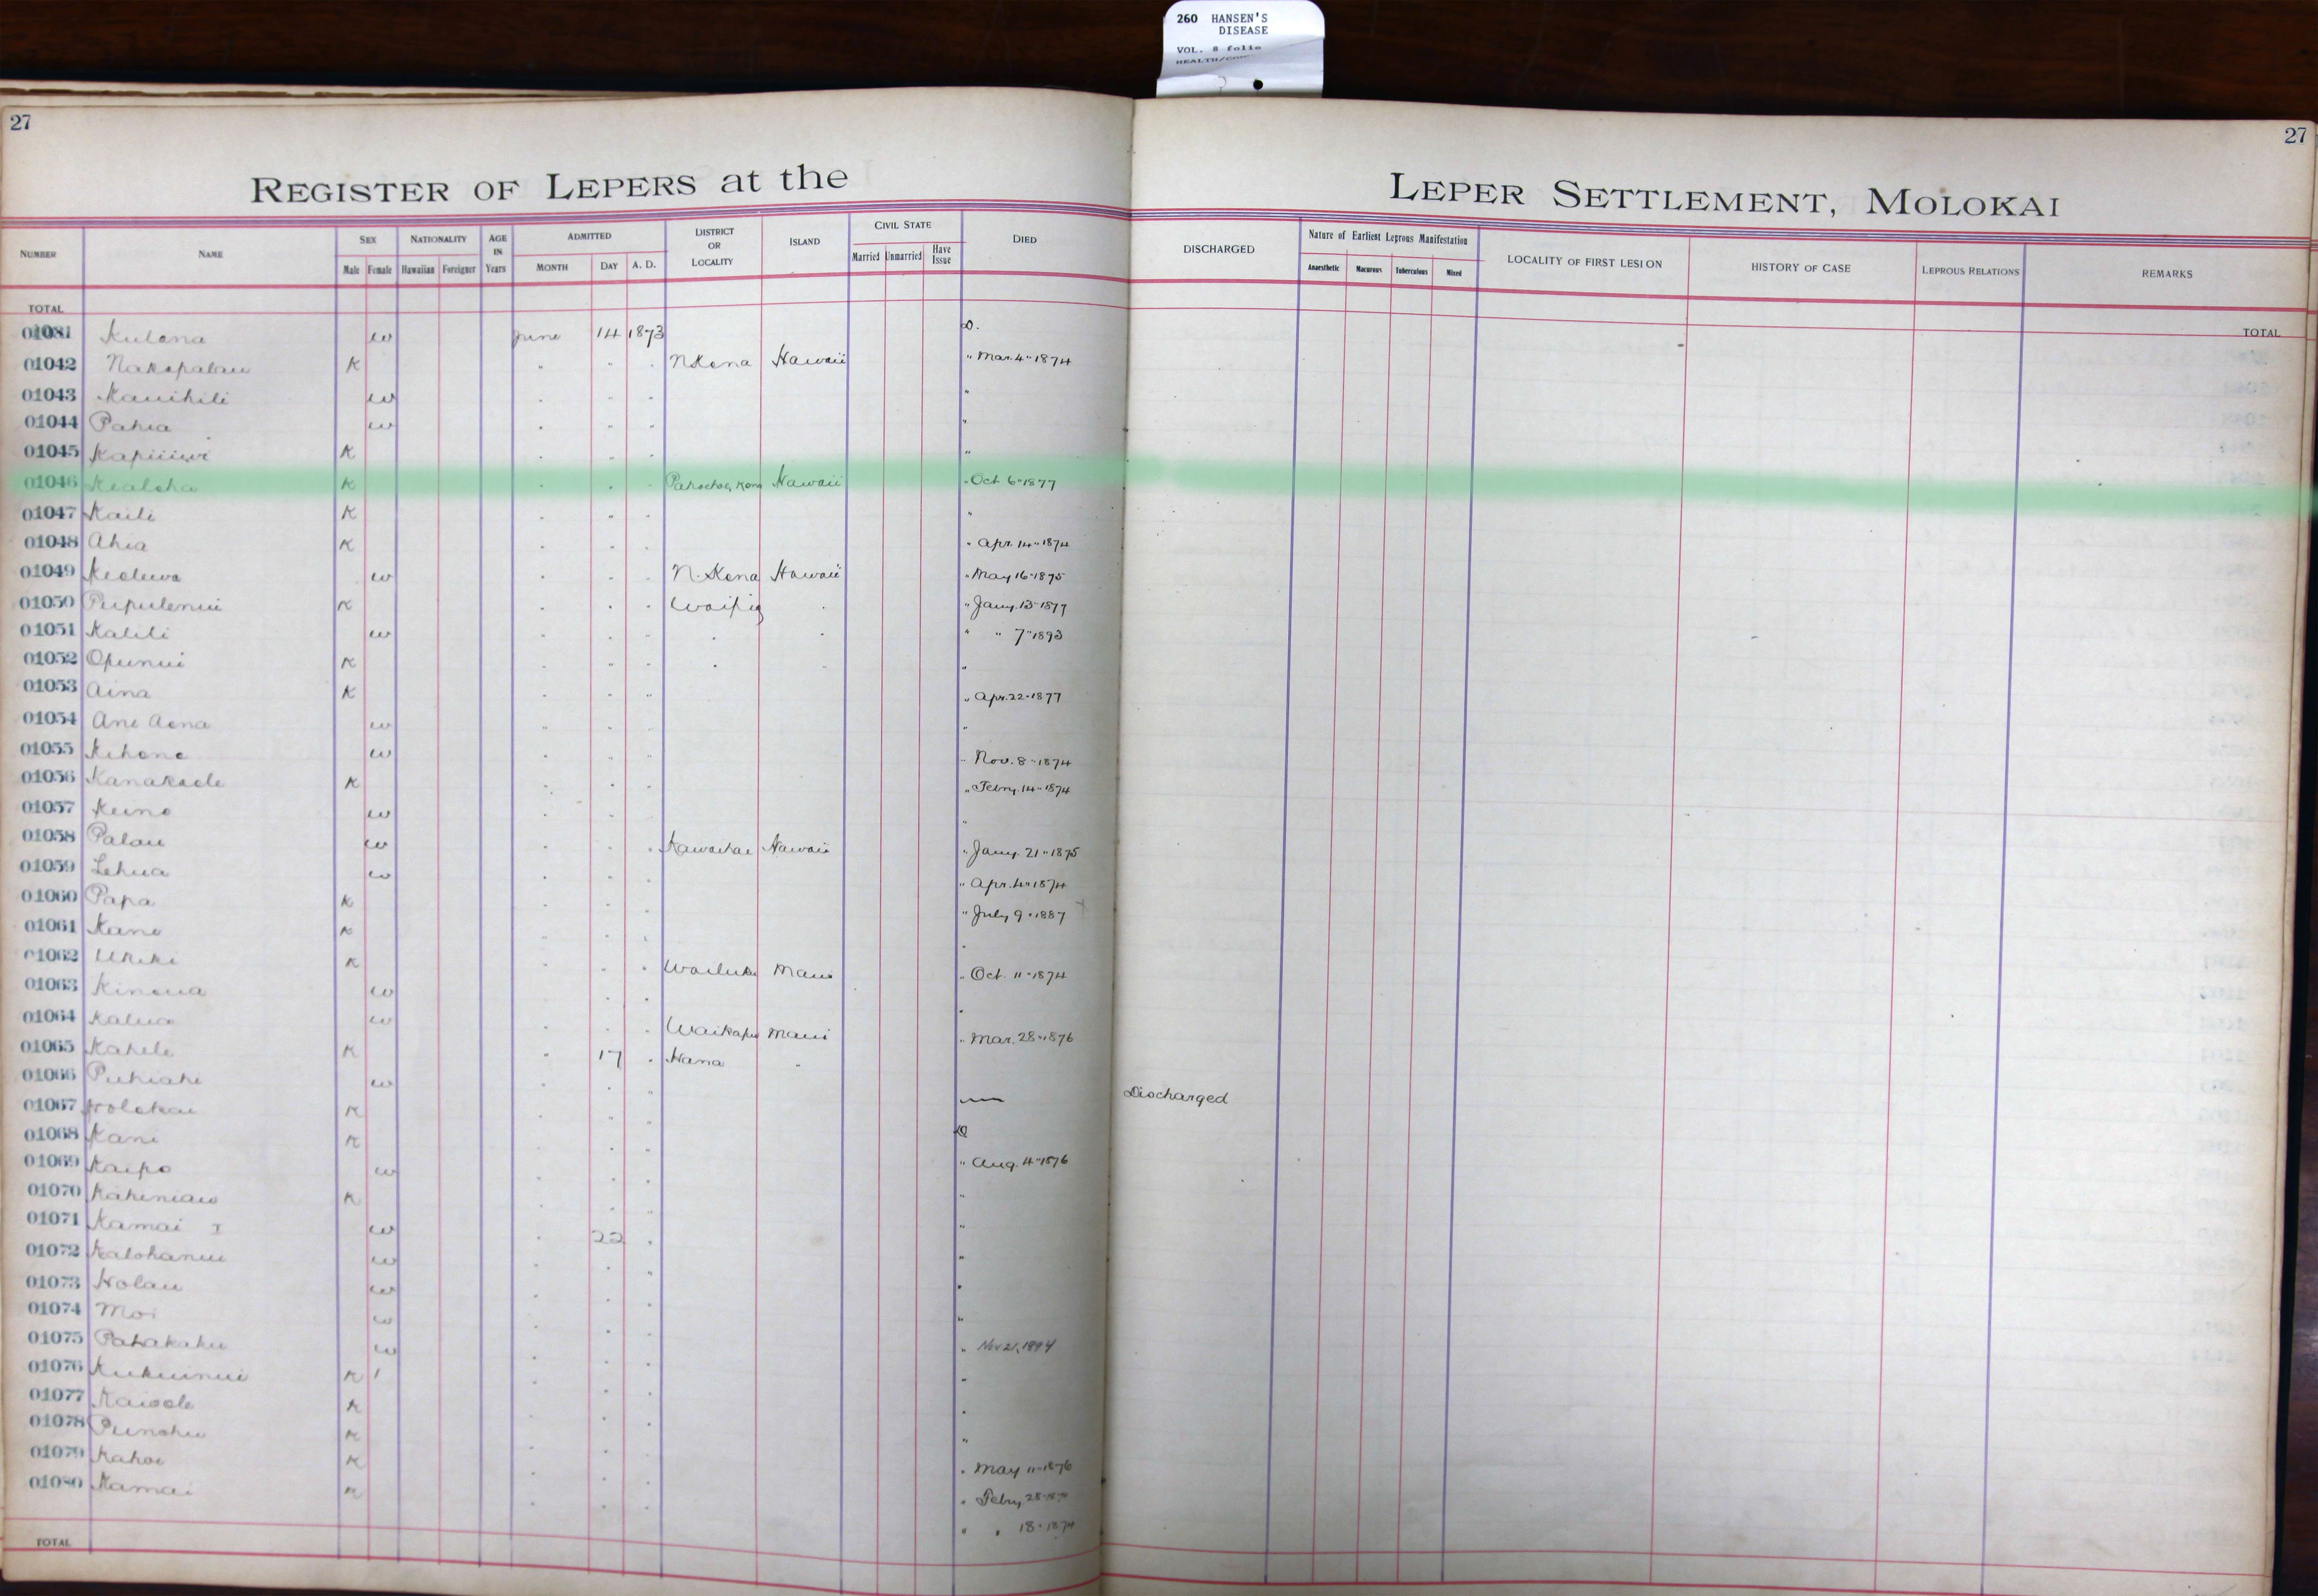 260 HANSEN'S
DISEASE
VOL. 8 folio
27
27
REGISTER OF LEPERS at the
LEPER SETTLEMENT, MOLOKAI
NUMBER NAME SEX NATIONALITY AGE IN Years ADMITTED DISTRICT OR LOCALITY ISLAND CIVIL STATE DIED DISCHARGED Nature of Earliest Leprous Manifestation LOCALITY OF FIRST LESION HISTORY OF CASE LEPROUS RELATIONS REMARKS
Male Female Hawaiian Foreigner MONTH DAY A. D. Married Unmarried Have Issue Anaesthetic Macurous Tuberculous Mixed
TOTAL
TOTAL
Kulana w June 14 1873 D.
01042 Nakopalau K " " " N Kona Hawaii " Mar. 4 " 1874
01043 Kauihili w " " " "
01044 Pahia w " " " "
01045 K " " " "
01046 Kealoha K " " " Hawaii " Oct 6 " 1877
01047 Kaili K " " " "
01048 Ahia K " " " " Apr. 14 " 1874
01049 w " " " N. Kona Hawaii " May 16 " 1875
01050 Pupulenui K " " " Waipio " " Jany. 13 " 1877
01051 Kalili w " " " " " " " 7 " 1893
01052 Opunui K " " " " " "
01053 Aina K " " " " Apr. 22 " 1877
01054 Ane Aona w " " " "
01055 Kihene w " " " " Nov. 8 " 1874
01056 Kanakaole K " " " " Febry. 14 " 1874
01057 Keino w " " " "
01058 Palau w " " " Kawaihae Hawaii " Jany. 21 " 1875
01059 Lehua w " " " " Apr. 4 " 1874
01060 Papa K " " " " July 9 " 1887
01061 Kane K " " " "
01062 Ukeke K " " " Wailuku Maui " Oct. 11 " 1874
01063 Kinoua w " " " "
01064 Kalua w " " " Waikapu Maui " Mar. 28 " 1876
01065 Kahele K " 17 " Hana "
01066 Puhiahi w " " " — Discharged
01067 Holokai K " " " D
01068 Kani K " " " " Aug. 4 " 1876
01069 Kaipo w " " " "
01070 Kaheniau K " " " "
01071 Kamai I w " 22 " "
01072 Kalohanui w " " " "
01073 Holau w " " " "
01074 Moi w " " " " Nov 21, 1894
01075 Pahakaku w " " " "
01076 Kukuinui K " " " "
01077 Kaioole K " " " "
01078 Punohu K " " " " May 11 " 1876
01079 Kahoe K " " " " Febry 28
01080 Kamai K " " " " " 18 " 1874
TOTAL